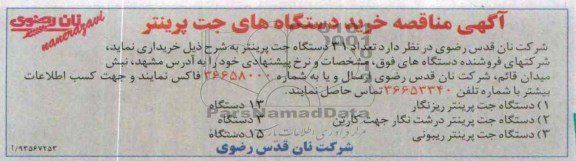 نان رضوی
nanerazavi
آگهی مناقصه خرید دستگاه های جت پرینتر
شرکت نان قدس رضوی در نظر دارد تعداد ۳۱ دستگاه جت پرینتر به شرح ذیل خریداری نماید،
شرکتهای فروشنده دستگاه های فوق، مشخصات و نرخ پیشنهادی خود را به آدرس مشهد، نبش
میدان قائم، شرکت نان قدس رضوی ارسال و یا به شماره ۳۶۶۵۸۰۰۰ فاکس نمایند و جهت کسب اطلاعات
بیشتر با شماره تلفن ۳۶۶۵۳۳۴۰ تماس حاصل نمایند.
۱) دستگاه جت پرینتر ریزنگار ۱۳ دستگاه
۲) دستگاه جت پرینتر درشت نگار جهت کارتن ۳ دستگاه
۳) دستگاه جت پرینتر ریبونی ۱۵ دستگاه
شرکت نان قدس رضوی
۱/۹۳۵۶۷۲۵۳
ParsNamadData